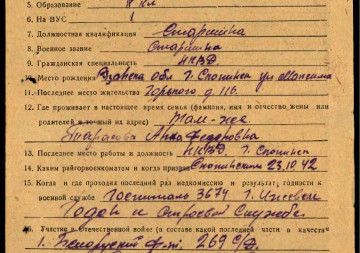 5. Образование 8 Кл
6. На ВУС 1
7. Должностная квалификация Старшина
8. Военное звание Старшина
9. Гражданская специальность НКВД
10. Место рождения Рязанска Обл г. Скопинск ул Максима
11. Последнее место жительства Горького д. 116.
12. Где проживает в настоящее время семья (фамилия, имя и отчество жены или
родителей и точный их адрес) Там-же
Тарасова Анна Федоровна
13. Последнее место работы и должность НКВД г. Скопинск
14. Каким райгорвоенкоматом и когда призван Скопинским 23.10.42
15. Когда и где проходил последний раз медкомиссию и результат годности к
военной службе Госпиталь 3674 г. Ижевск
Годен к строевой Службе.
Участие в Отечественной войне (в составе какой последней части в качестве
1. Белоруский фр-т. 269 С/Д.